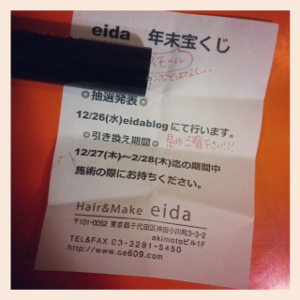 eida 年末宝くじ
◎抽選発表◎
12/26(水)eidablogにて行います。
◎引き換え期間◎
是非ご覧下さい!!!
12/27(木)～2/28(木)迄の期間中
施術の際にお持ちください。
Hair&Make eida
〒101-0052 東京都千代田区神田小川町3-3-2
akimotoビル1F
TEL&FAX 03-3291-5450